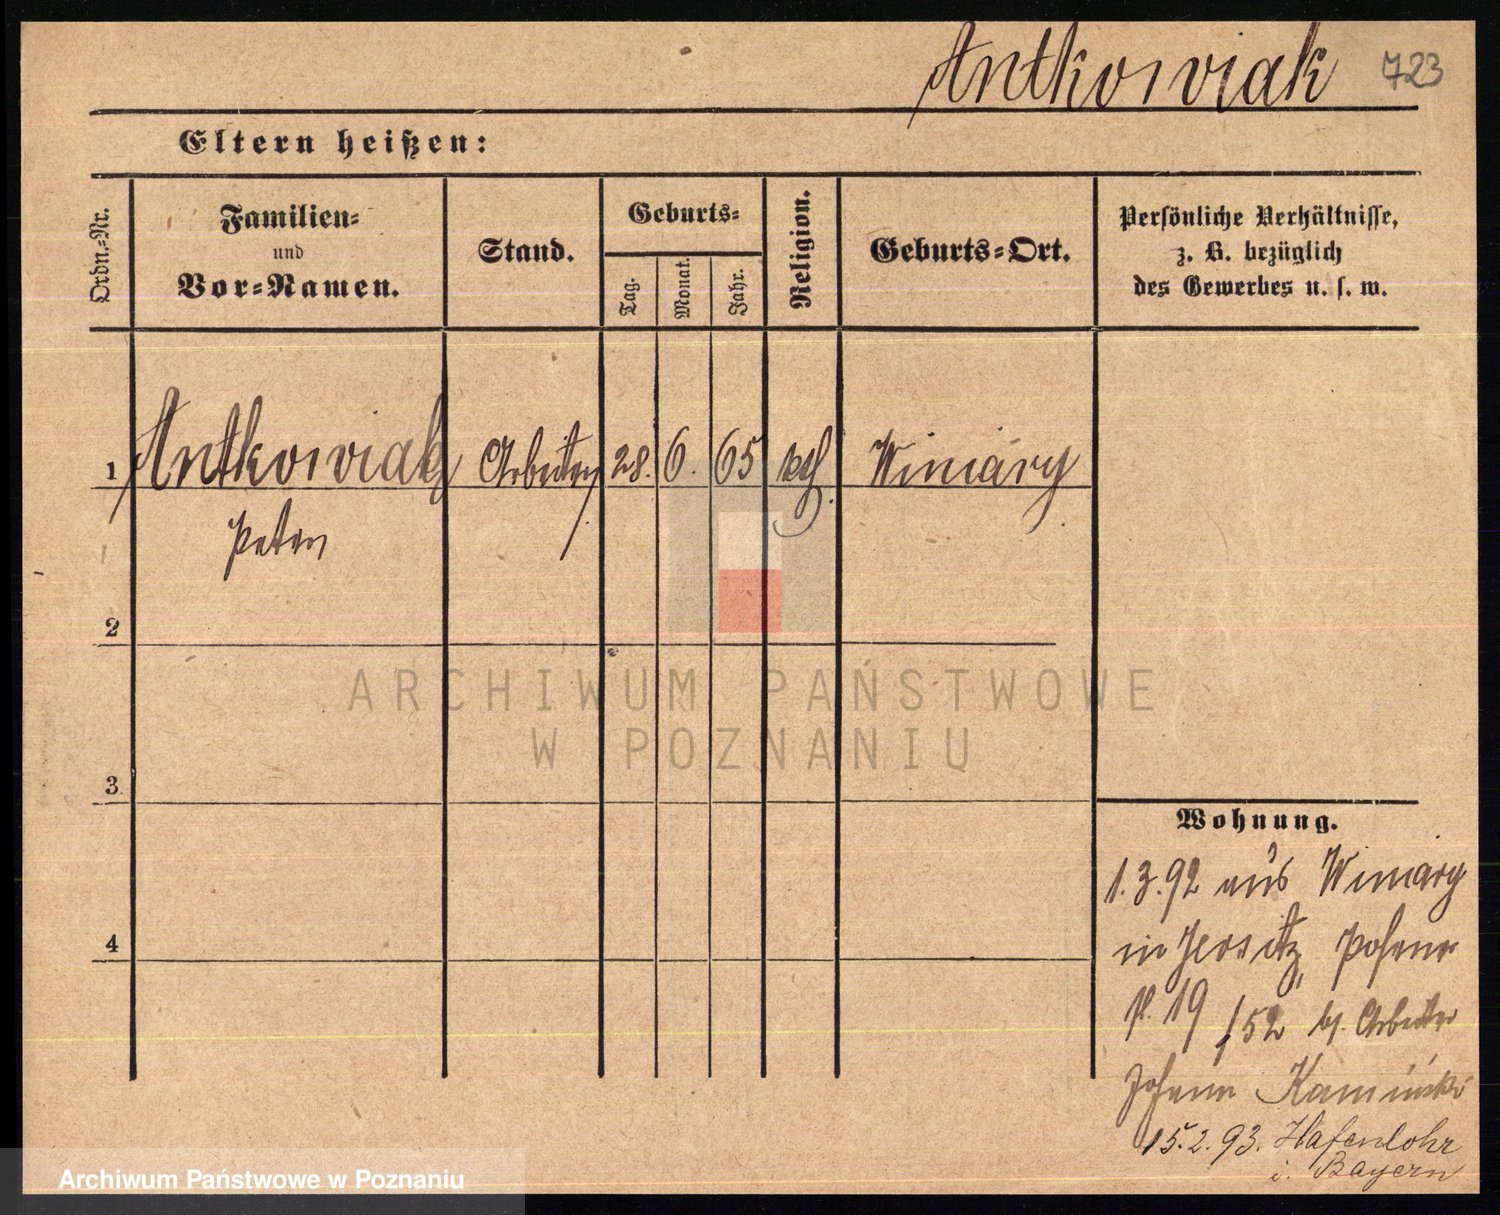 Antkowiak 723
Eltern heißen:
Ordn.-Nr.
Familien-
und
Vor-Namen.
Stand.
Geburts-
Tag.
Monat.
Jahr.
Religion.
Geburts-Ort.
Persönliche Verhältnisse,
z. B. bezüglich
des Gewerbes u. s. w.
1 Antkowiak Arbeiter 28. 6. 65 kth Winiary
Peter
2
ARCHIWUM PAŃSTWOWE
W POZNANIU
3
4
Wohnung.
1.3.92 aus Winiary
in Jersitz, Posener
19/52 bj. Arbeiter
Johann Kaminski
15.2.93. Hafenlohr
i. Bayern
Archiwum Państwowe w Poznaniu